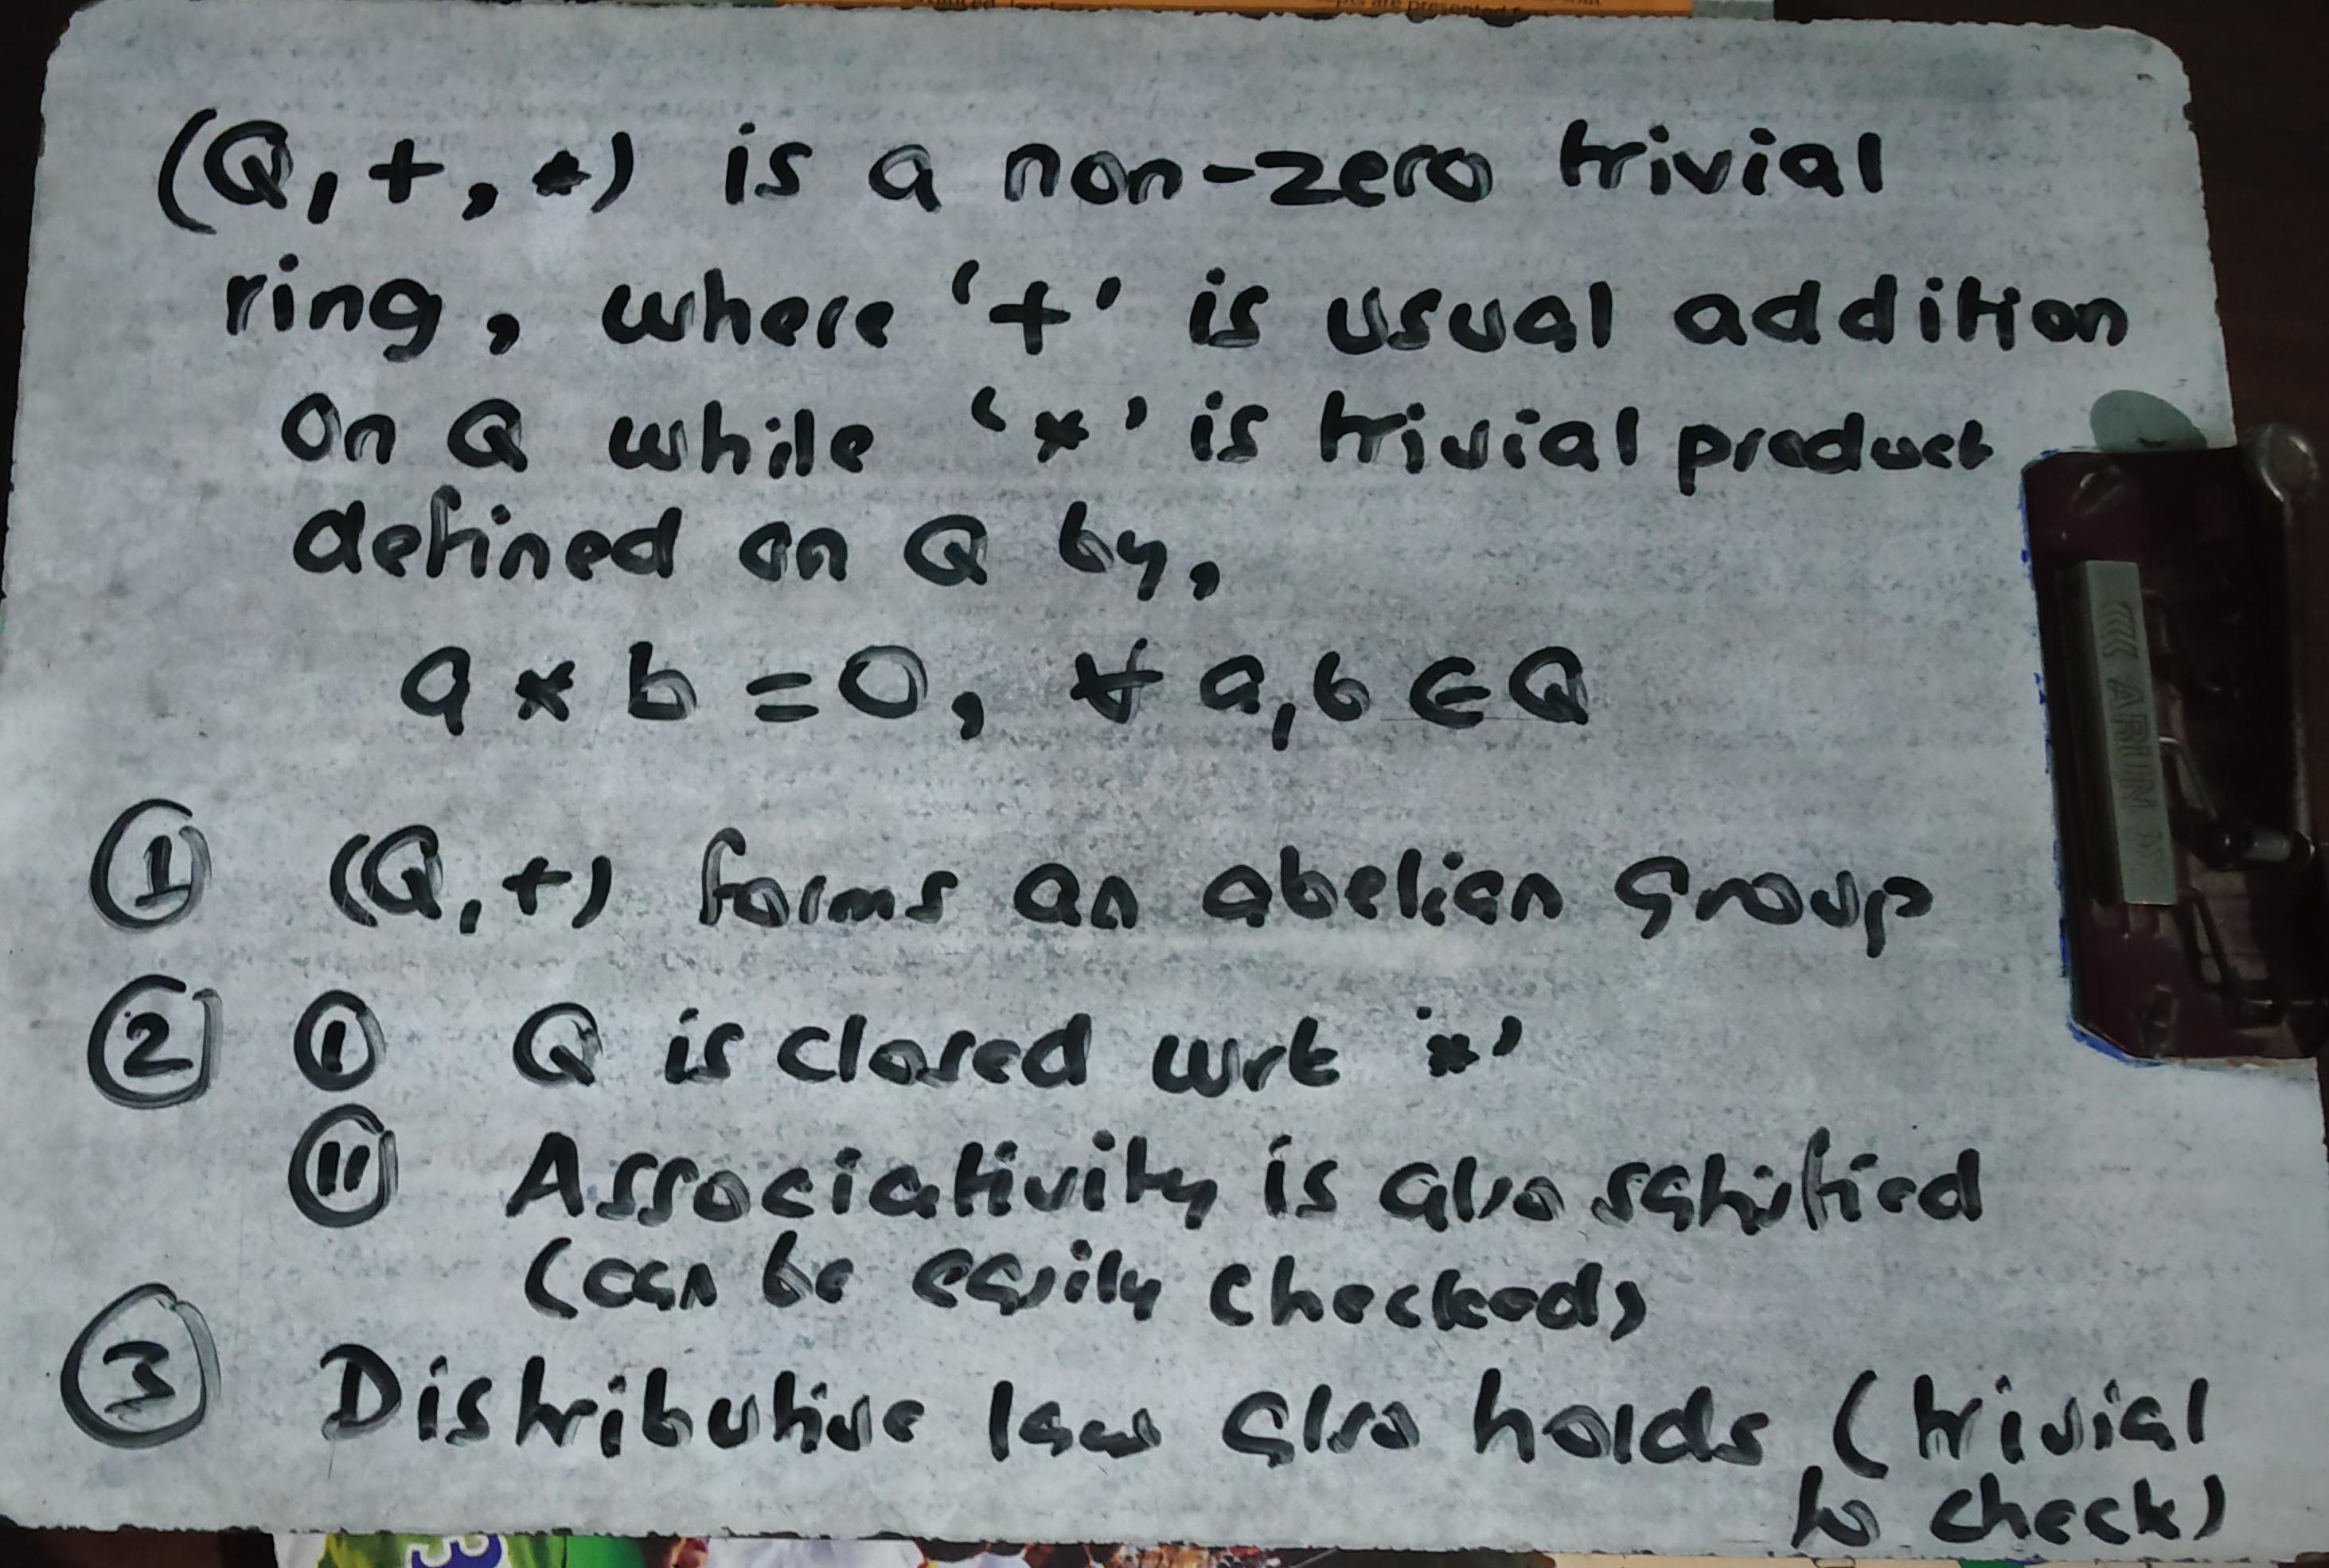 (Q, +, *) is a non-zero trivial
ring, where '+' is usual addition
on Q while '*' is trivial product
defined on Q by,
a * b = 0, ∀ a, b ∈ Q
① (Q, +) forms an abelian group
② ① Q is closed wrt '*'
⑪ Associativity is also satisfied
(can be easily checked)
③ Distributive law also holds (trivial
to check)
ARUN